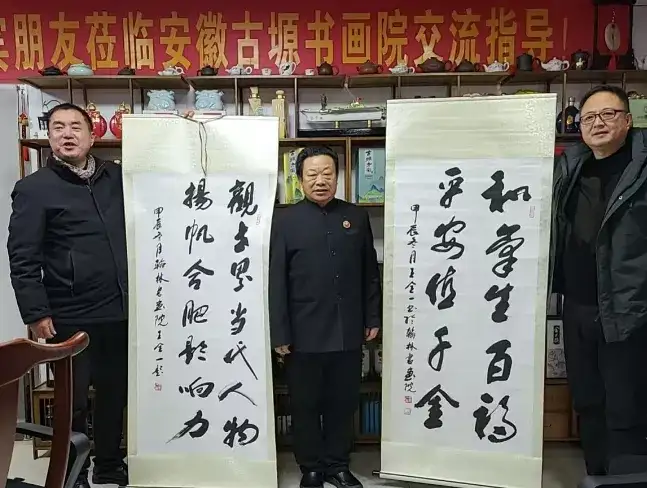 宾朋友莅临安徽古塬书画院交流指导!
觀世界當代人物
揚帆合肥影响力
甲辰冬月翰林書画院王全一题
和氣生百福
平安值千金
甲辰冬月王全一书於翰林書画院